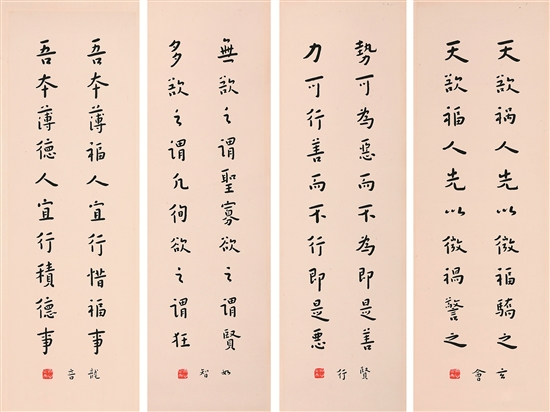 天欲祸人先以微福驕之
天欲福人先以微禍警之
玄會
勢可為惡而不為即是善
力可行善而不行即是惡
賢行
無欲之謂聖寡欲之謂賢
多欲之謂凡徇欲之謂狂
如智
吾本薄福人宜行惜福事
吾本薄德人宜行積德事
龍音